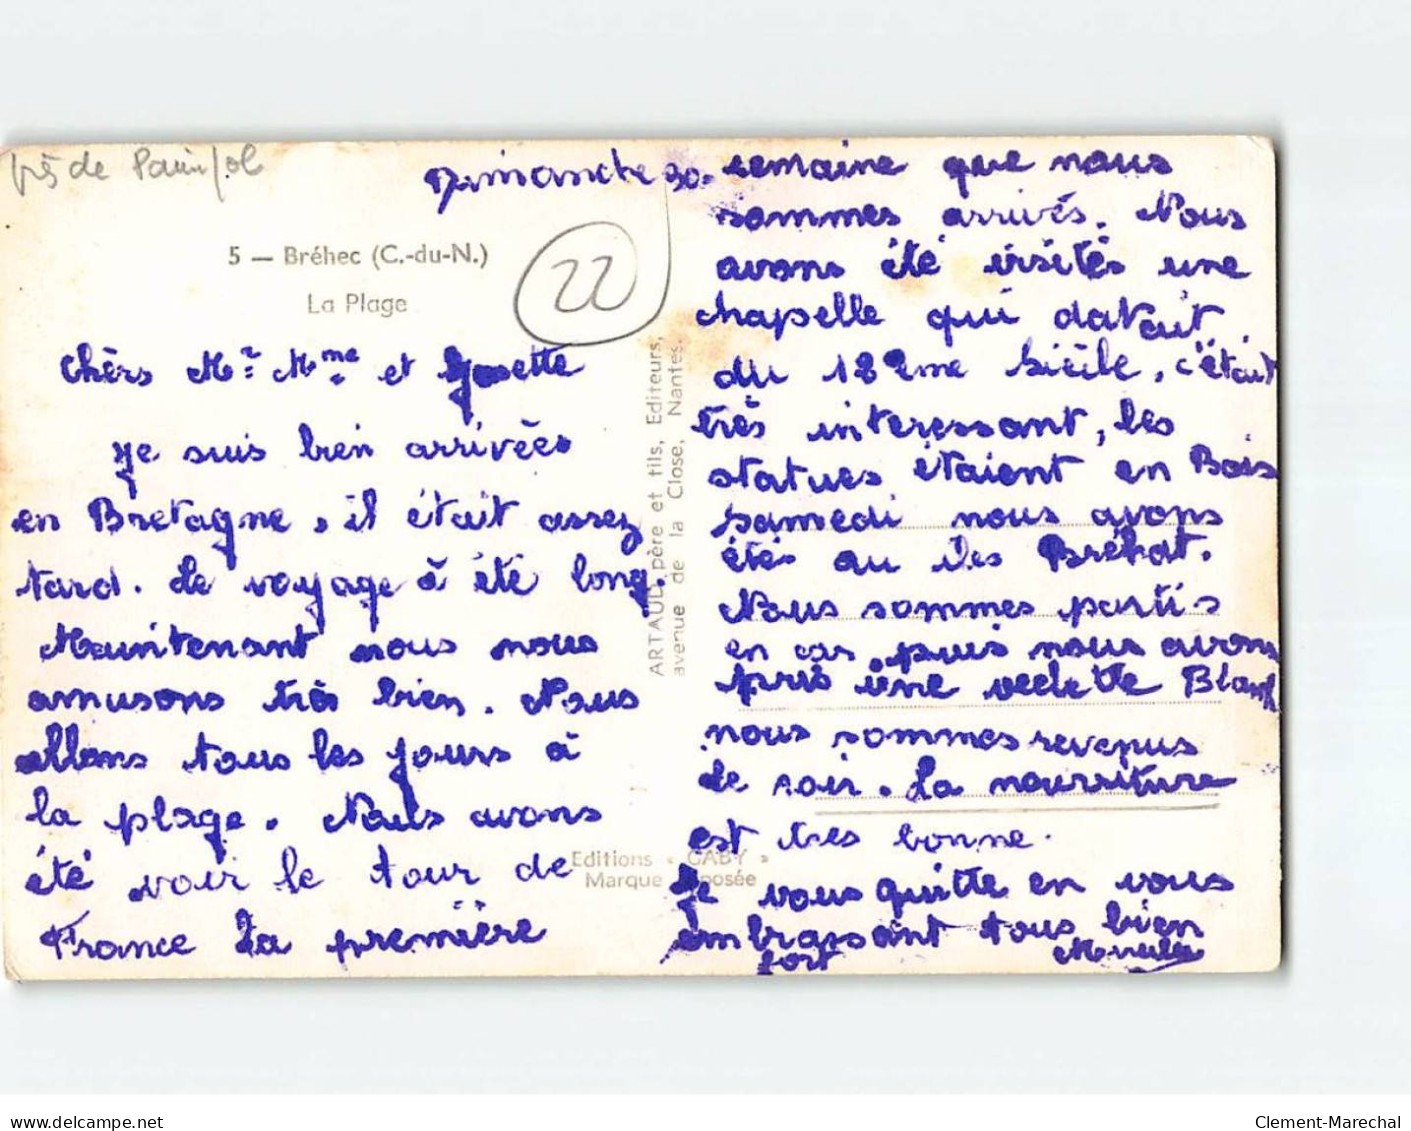 près de Paimpol
Dimanche 30.
5 — Bréhec (C.-du-N.)
La Plage
22
chèrs Mr. Mme. et Josette
je suis bien arrivées
en Bretagne, il était assez
tard. Le voyage à été long.
Maintenant nous nous
amusons très bien. Nous
allons tous les jours à
la plage. Nous avons
été voir le tour de
France la première
semaine que nous
sommes arrivés. Nous
avons été visités une
chapelle qui datait
du 12ème siècle, c'était
très interessant, les
statues étaient en Bois
samedi nous avons
étés au iles Bréhat.
Nous sommes partis
en car puis nous avons
pris une vedette Blanche
nous sommes revenus
le soir. La nourriture
est très bonne.
Je vous quitte en vous
embrassant tous bien
fort
ARTAUD père et fils, Editeurs,
avenue de la Close, Nantes.
Editions « GABY »
Marque Déposée
Clement-Marechal
www.delcampe.net